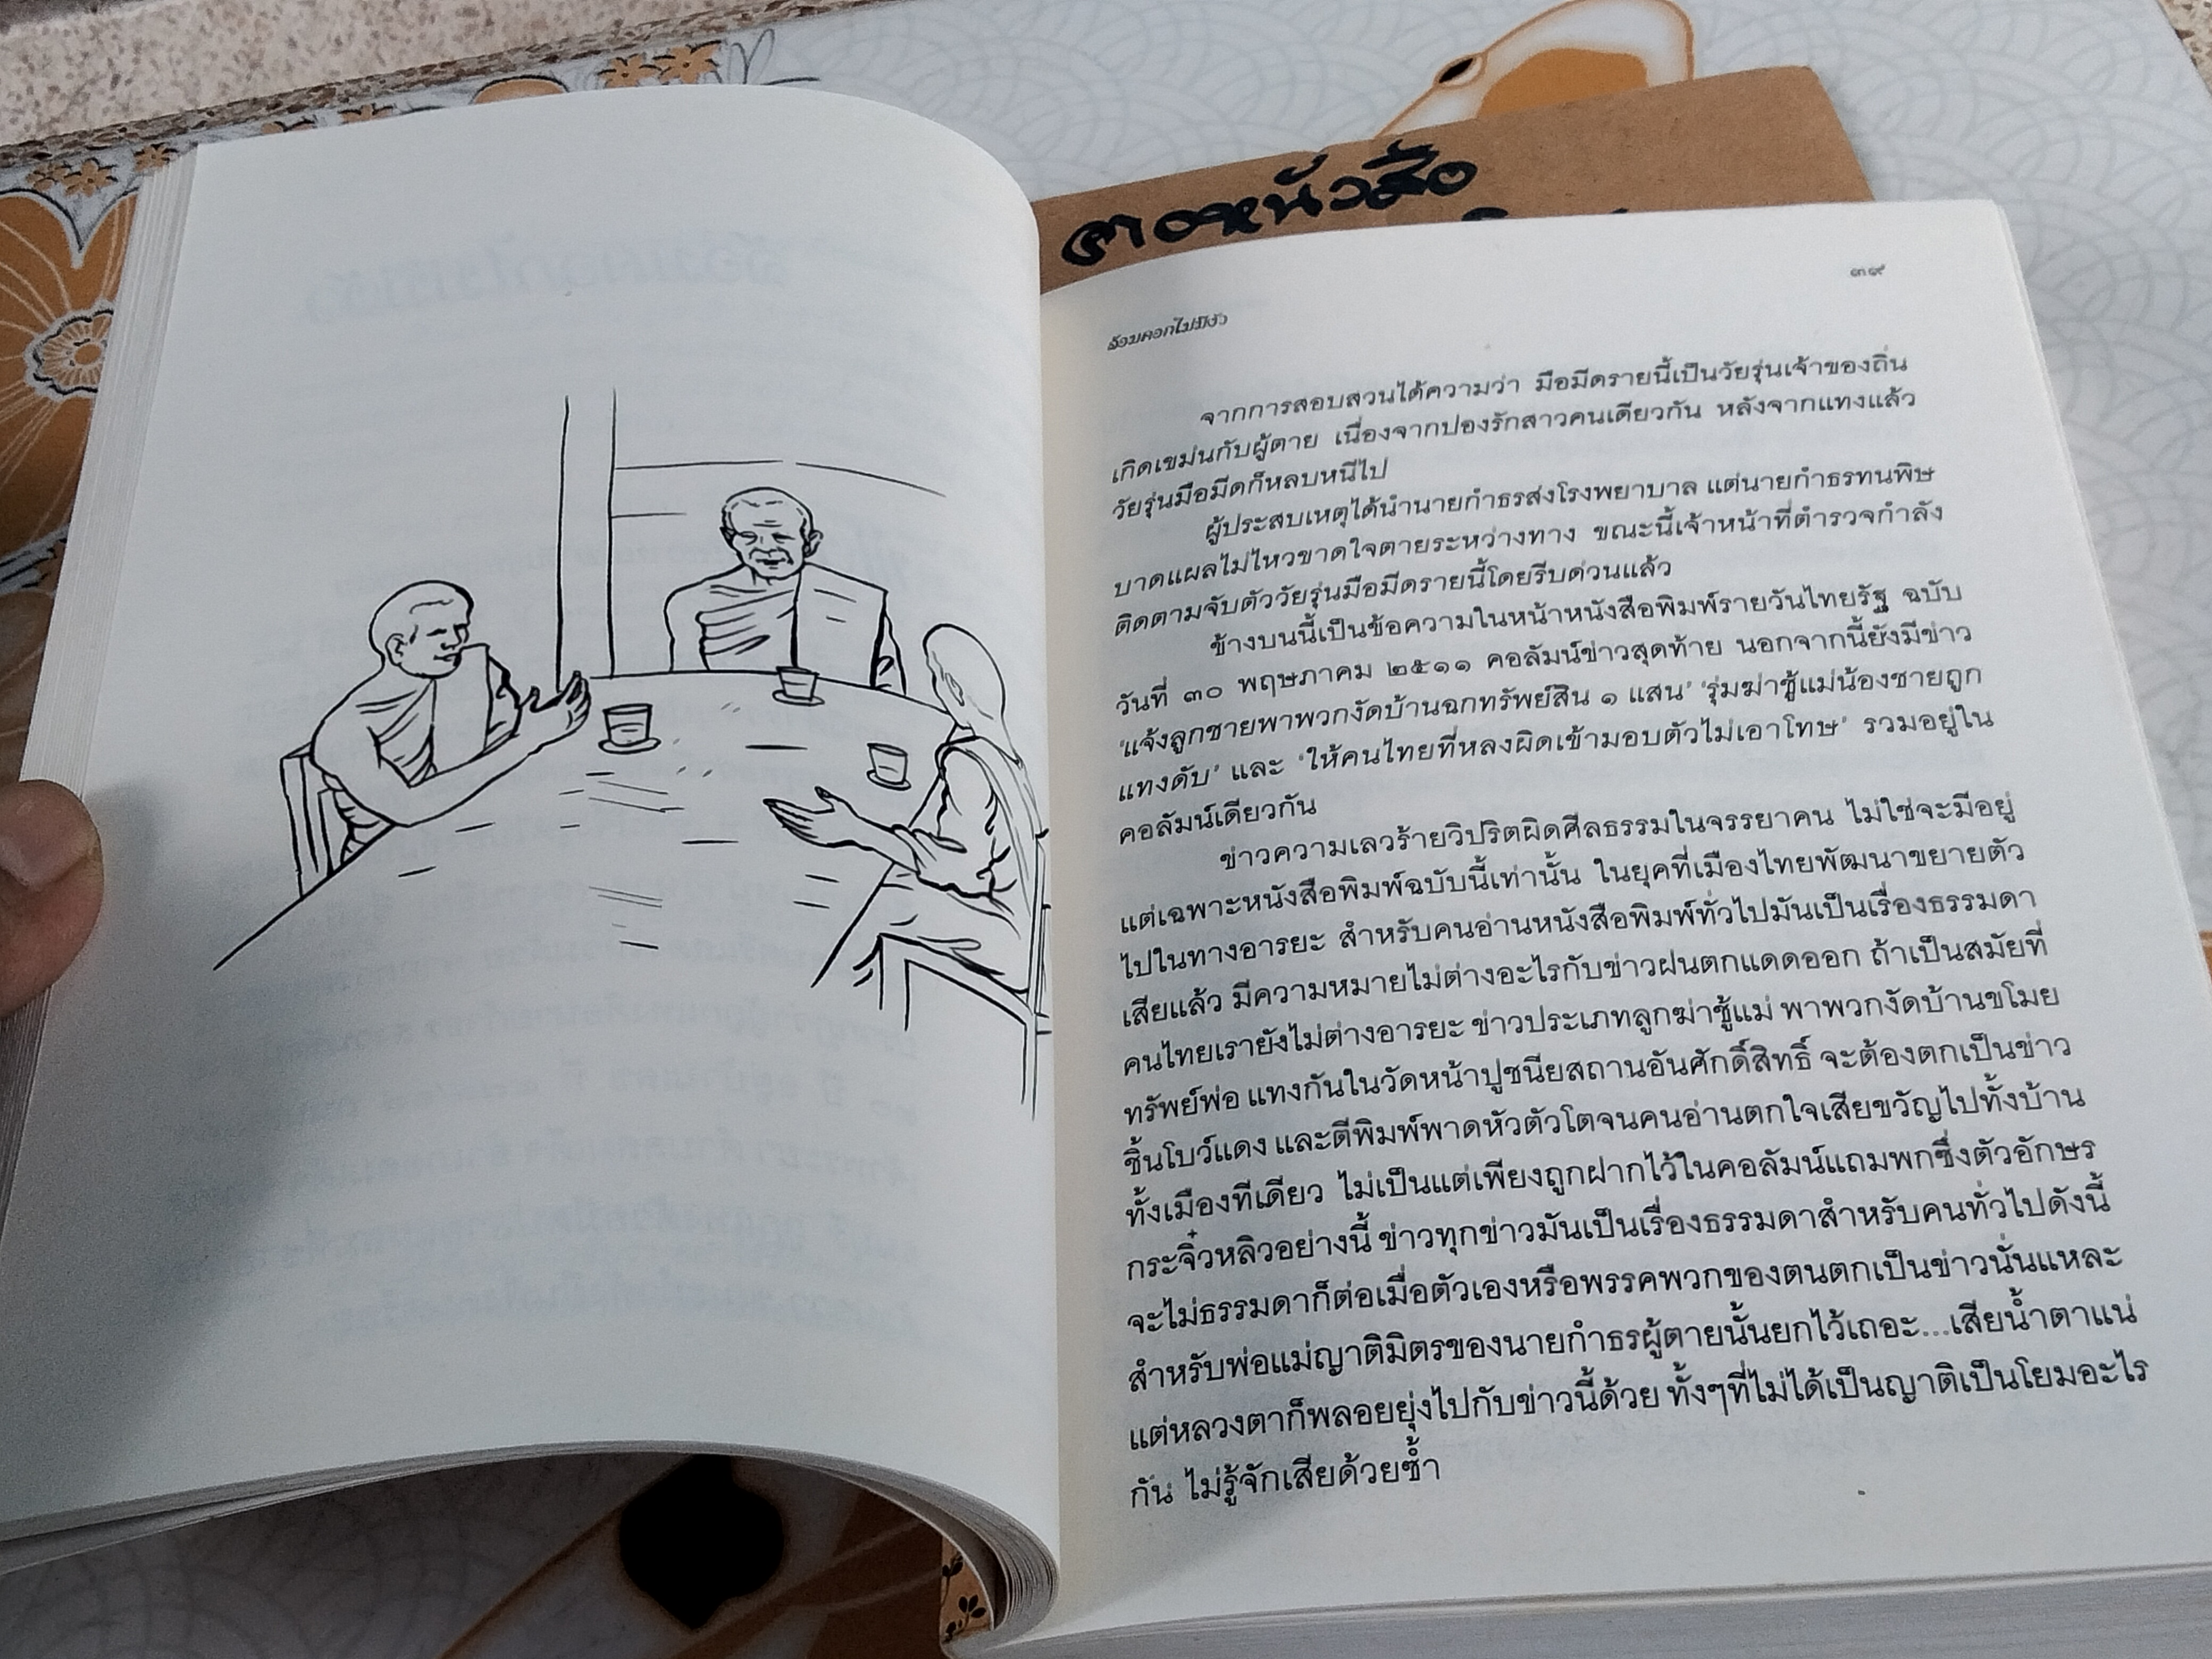 คอหนังสือ
๓๙
ล้อมคอกไม่มีวัว
จากการสอบสวนได้ความว่า มือมีดรายนี้เป็นวัยรุ่นเจ้าของถิ่น
เกิดเขม่นกับผู้ตาย เนื่องจากปองรักสาวคนเดียวกัน หลังจากแทงแล้ว
วัยรุ่นมือมีดก็หลบหนีไป
ผู้ประสบเหตุได้นำนายกำธรส่งโรงพยาบาล แต่นายกำธรทนพิษ
บาดแผลไม่ไหวขาดใจตายระหว่างทาง ขณะนี้เจ้าหน้าที่ตำรวจกำลัง
ติดตามจับตัววัยรุ่นมือมีดรายนี้โดยรีบด่วนแล้ว
ข้างบนนี้เป็นข้อความในหน้าหนังสือพิมพ์รายวันไทยรัฐ ฉบับ
วันที่ ๓๐ พฤษภาคม ๒๕๑๑ คอลัมน์ข่าวสุดท้าย นอกจากนี้ยังมีข่าว
'แจ้งลูกชายพาพวกงัดบ้านฉกทรัพย์สิน ๑ แสน' 'รุ่มฆ่าชู้แม่น้องชายถูก
แทงดับ' และ 'ให้คนไทยที่หลงผิดเข้ามอบตัวไม่เอาโทษ' รวมอยู่ใน
คอลัมน์เดียวกัน
ข่าวความเลวร้ายวิปริตผิดศีลธรรมในจรรยาคน ไม่ใช่จะมีอยู่
แต่เฉพาะหนังสือพิมพ์ฉบับนี้เท่านั้น ในยุคที่เมืองไทยพัฒนาขยายตัว
ไปในทางอารยะ สำหรับคนอ่านหนังสือพิมพ์ทั่วไปมันเป็นเรื่องธรรมดา
เสียแล้ว มีความหมายไม่ต่างอะไรกับข่าวฝนตกแดดออก ถ้าเป็นสมัยที่
คนไทยเรายังไม่ต่างอารยะ ข่าวประเภทลูกฆ่าชู้แม่ พาพวกงัดบ้านขโมย
ทรัพย์พ่อ แทงกันในวัดหน้าปูชนียสถานอันศักดิ์สิทธิ์ จะต้องตกเป็นข่าว
ชิ้นโบว์แดง และตีพิมพ์พาดหัวตัวโตจนคนอ่านตกใจเสียขวัญไปทั้งบ้าน
ทั้งเมืองทีเดียว ไม่เป็นแต่เพียงถูกฝากไว้ในคอลัมน์แถมพกซึ่งตัวอักษร
กระจิ๋วหลิวอย่างนี้ ข่าวทุกข่าวมันเป็นเรื่องธรรมดาสำหรับคนทั่วไปดังนี้
จะไม่ธรรมดาก็ต่อเมื่อตัวเองหรือพรรคพวกของตนตกเป็นข่าวนั่นแหละ
สำหรับพ่อแม่ญาติมิตรของนายกำธรผู้ตายนั้นยกไว้เถอะ...เสียน้ำตาแน่
แต่หลวงตาก็พลอยยุ่งไปกับข่าวนี้ด้วย ทั้งๆที่ไม่ได้เป็นญาติเป็นโยมอะไร
กัน ไม่รู้จักเสียด้วยซ้ำ